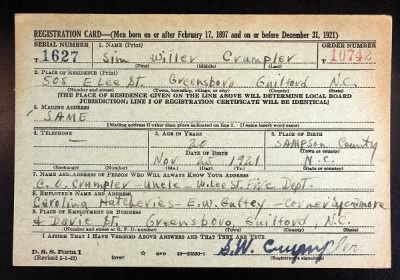 REGISTRATION CARD—(Men born on or after February 17, 1897 and on or before December 31, 1921)
SERIAL NUMBER 1. NAME (Print) ORDER NUMBER
T 1627 Sim Willer Crumpler 10742
(First) (Middle) (Last)
2. PLACE OF RESIDENCE (Print)
505 E Lee St. Greensboro Guilford N.C.
(Number and street) (Town, township, village, or city) (County) (State)
[THE PLACE OF RESIDENCE GIVEN ON THE LINE ABOVE WILL DETERMINE LOCAL BOARD
JURISDICTION; LINE 2 OF REGISTRATION CERTIFICATE WILL BE IDENTICAL]
3. MAILING ADDRESS
SAME
[Mailing address if other than place indicated on line 2. If same insert word same]
4. TELEPHONE 5. AGE IN YEARS 6. PLACE OF BIRTH
— 20 SAMPSON County
DATE OF BIRTH (Town or county)
Nov 25 1921 N.C.
(Mo.) (Day) (Yr.) (State or country)
7. NAME AND ADDRESS OF PERSON WHO WILL ALWAYS KNOW YOUR ADDRESS
C. O. Crumpler - Uncle - W. Lee St Fire Dept.
8. EMPLOYER'S NAME AND ADDRESS
Carolina Hatcheries - E.W. - Corner Sycamore
9. PLACE OF EMPLOYMENT OR BUSINESS
& Davie St. Greensboro, Guilford, N.C.
(Number and street or R. F. D. number) (Town) (County) (State)
I AFFIRM THAT I HAVE VERIFIED ABOVE ANSWERS AND THAT THEY ARE TRUE.
S.W. Crumpler
D. S. S. Form 1
(Revised 1-1-42)